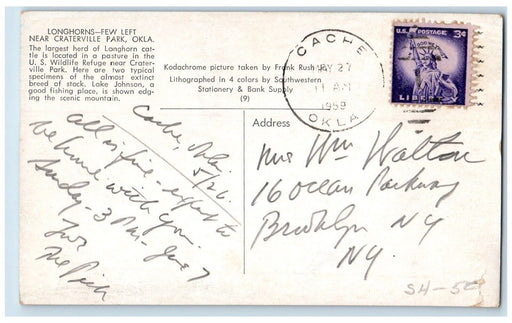 LONGHORNS—FEW LEFT
NEAR CRATERVILLE PARK, OKLA.
The largest herd of Longhorn cat-
tle is located in a pasture in the
U. S. Wildlife Refuge near Crater-
ville Park. Here are two typical
specimens of the almost extinct
breed of stock. Lake Johnson, a
good fishing place, is shown edg-
ing the scenic mountain.
Kodachrome picture taken by Frank Rush
Lithographed in 4 colors by Southwestern
Stationery & Bank Supply
(9)
CACHE
MAY 27
11 AM
1959
OKLA
U.S. POSTAGE 3¢
LIBERTY
Cache, Okla.
5/26.
All is fine - expect to
be home with you
Sunday - 3 PM - June 7
The
Address
Mrs Wm Walton
16 Ocean Parkway
Brooklyn NY
NY.
SH-50